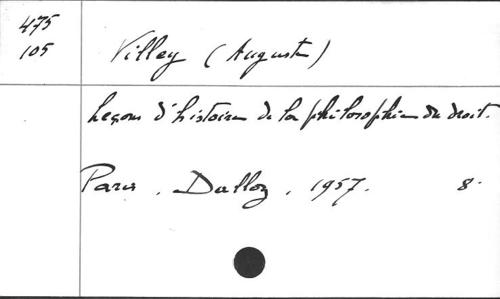 475
105
Villey (Auguste)
Leçons d'histoire de la philosophie du droit.
Paris. Dalloz. 1957. 8°